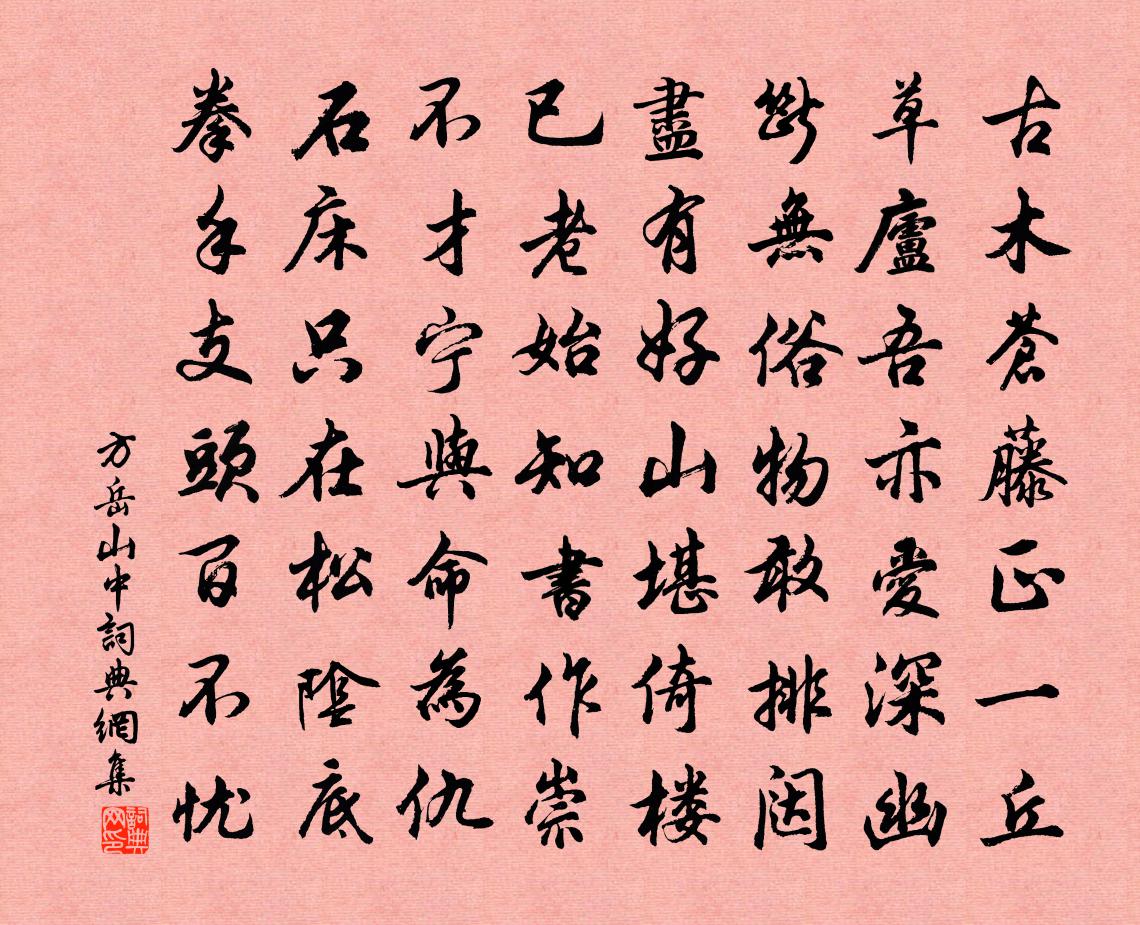 古木蒼藤正一丘
草廬吾亦愛深幽
斷無俗物敢排闼
盡有好山堪倚楼
已老始知書作崇
不才宁與命為仇
石床只在松陰底
拳手支頭百不忧
方岳山中詞典網集
詞典网印